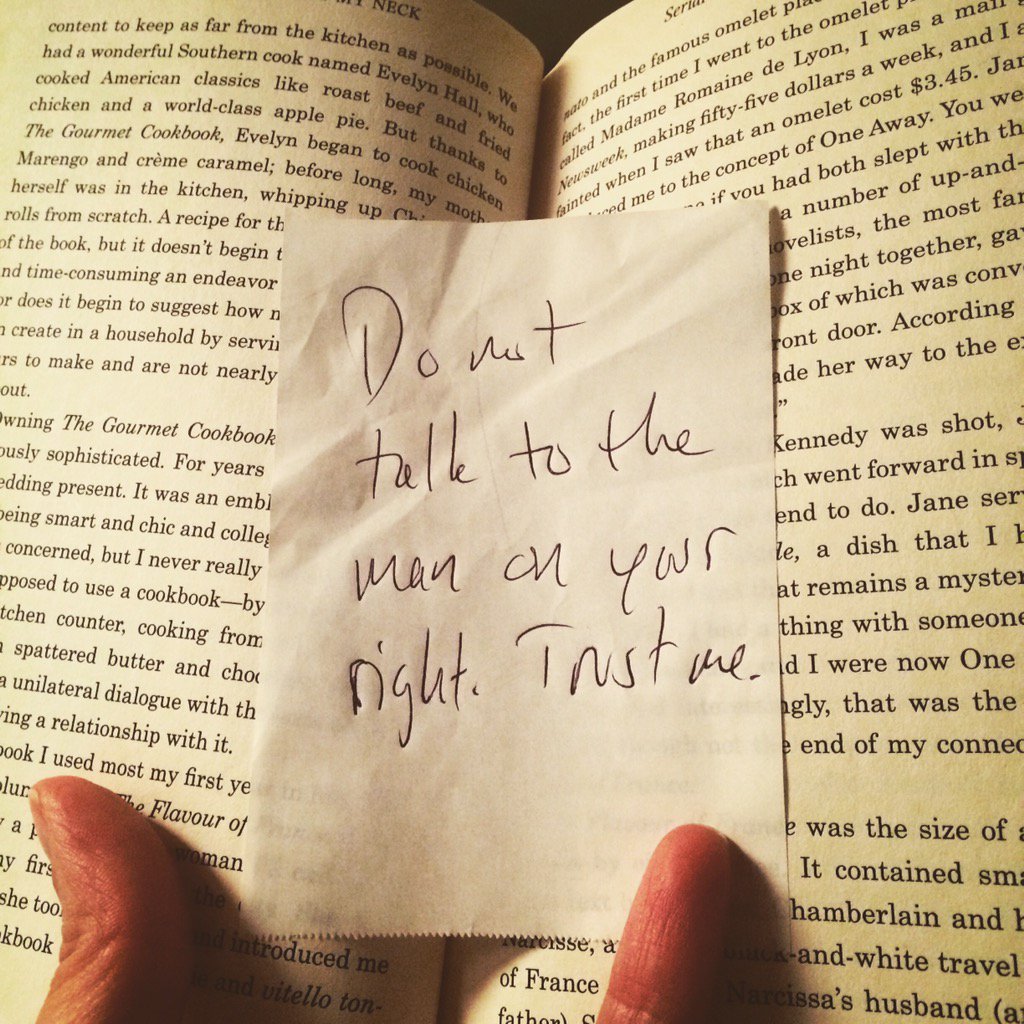 MY NECK
content to keep as far from the kitchen as possible. We
had a wonderful Southern cook named Evelyn Hall, who
cooked American classics like roast beef and fried
chicken and a world-class apple pie. But thanks to
The Gourmet Cookbook, Evelyn began to cook chicken
Marengo and crème caramel; before long, my
herself was in the kitchen, whipping up
rolls from scratch. A recipe for
of the book, but it doesn't begin
time-consuming an endeavor
does it begin to suggest how
create in a household by
to make and are not nearly
out.
Owning The Gourmet Cookbook
sophisticated. For years
present. It was an
being smart and chic and
concerned, but I never really
to use a cookbook—by
counter, cooking from
spattered butter and
a unilateral dialogue with
a relationship with it.
I used most my first
The Flavour of
woman
she
the
and introduced me
and vitello ton-
Do not
talk to the
man on your
right. Trust me.
and the famous omelet
the first time I went to the omelet
called Madame Romaine de Lyon, I was a mail
Newsweek, making fifty-five dollars a week, and I
fainted when I saw that an omelet cost $3.45.
me to the concept of One Away. You
if you had both slept with
a number of up-and-
the most
night together,
of which was
door. According
her way to the
"
Kennedy was shot,
went forward in
end to do. Jane
a dish that I
that remains a
thing with someone
I were now One
that was the
end of my
was the size of
It contained
and
Narcisse,
black-and-white travel
of France
Narcissa's husband
father).